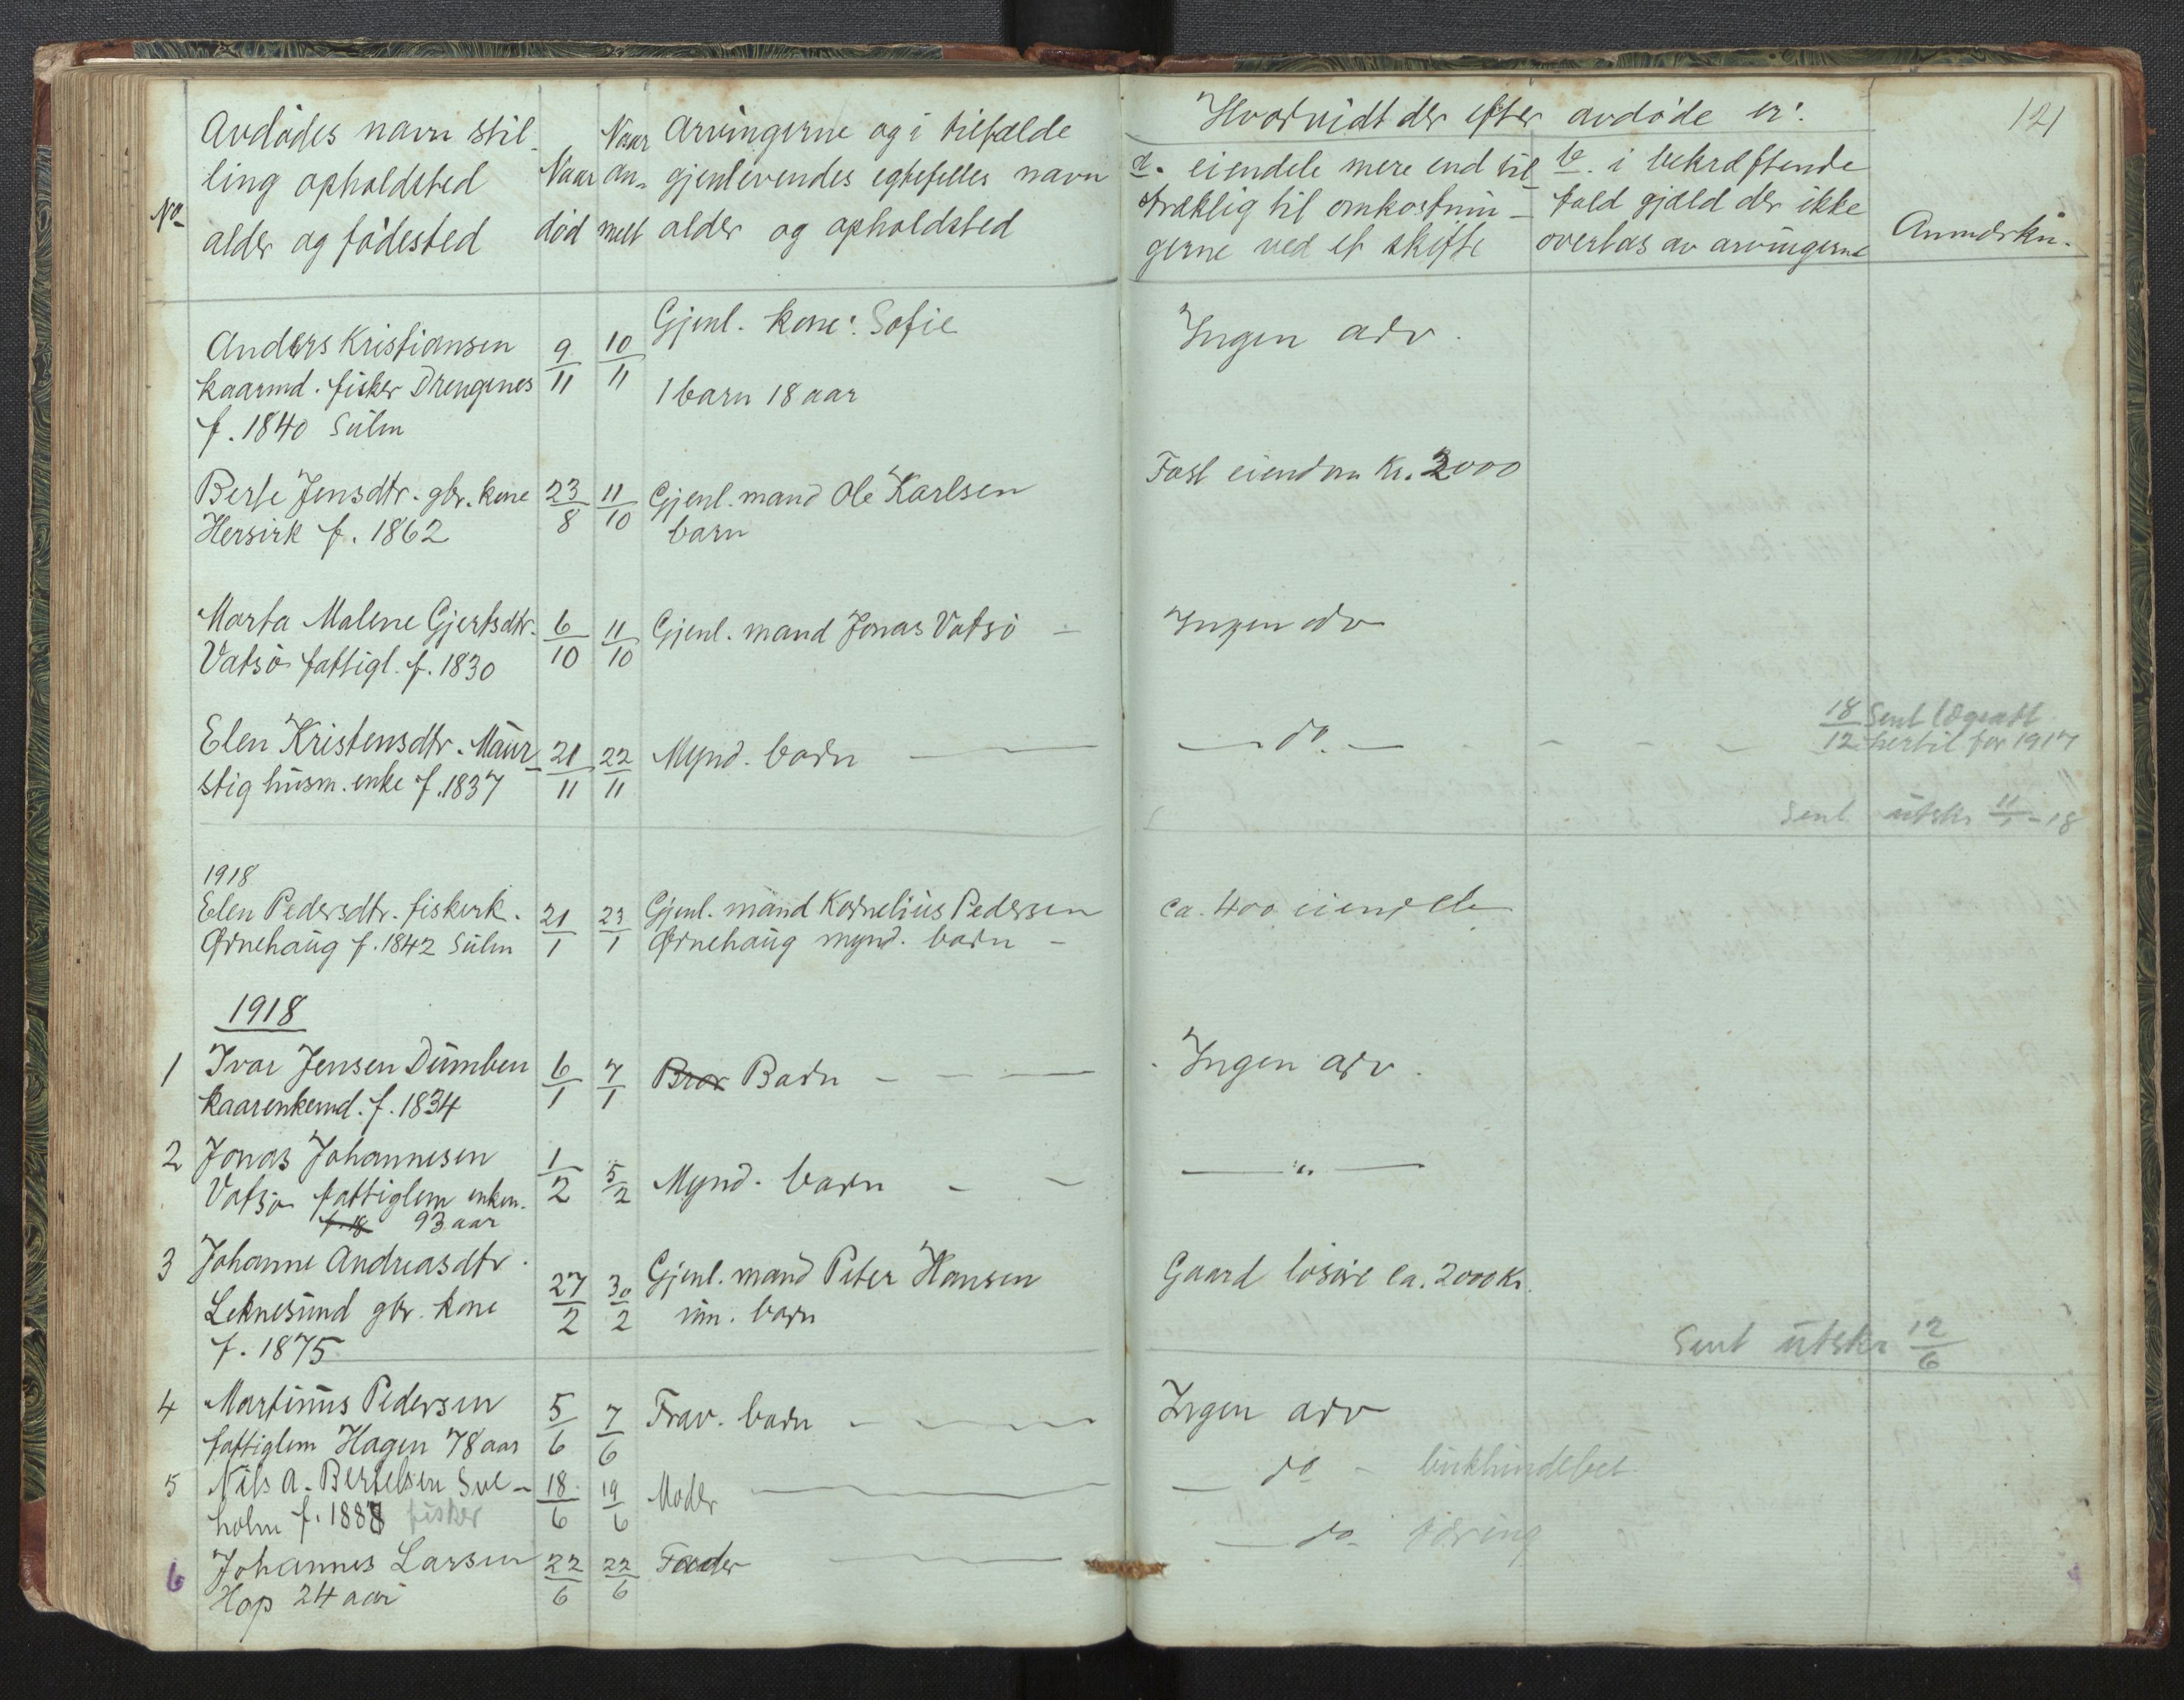 121
No
Avdødes navn stil-
ling opholdsted
alder og fødested
Naar
død
Naar
an-
melt
Arvingerne og i tilfælde
gjenlevendes egtefelles navn
alder og opholdsted
Hvorvidt der efter avdøde er:
a. eiendele mere end til-
stræklig til omkostnin-
gerne ved et skifte
b. i bekræftende
fald gjæld der ikke
overtas av arvingerne
Anmerkn.
Anders Kristiansen
kaarmd. fisker Drengenes
f. 1840 Sulen
9/11
10/11
Gjenl. kone: Sofie
1 barn 18 aar
Ingen arv.
Berte Jensdtr. gbr. kone
Hersirk f. 1862
23/8
11/10
Gjenl. mand Ole Karlsen
barn
Fast eiendom Kr. 2000
Marta Malene Gjertsdtr.
Vatsø fattigl. f. 1830
6/10
11/10
Gjenl. mand Jonas Vatsø —
Ingen arv
Elen Kristensdtr. Maur-
stig husm. enke f. 1837
21/11
22/11
Mynd. barn —
— do. —
18/12 Sent
hertil for 1917
Sent utskr 11/1-18
1918
Elen Pedersdtr. fiskerk.
Ørnehaug f. 1842 Sulen
21/1
23/1
Gjenl. mand Kornelius Pedersen
Ørnehaug mynd. barn —
ca. 400 eiendele
1918
1 Ivar Jensen Dumben
kaarenkemd. f. 1834
6/1
7/1
Bror Barn — — —
Ingen arv.
2 Jonas Johannesen
Vatsø fattiglem enkem.
f. 18 93 aar
1/2
5/2
Mynd. barn — —
— " —
3 Johanne Andreasdtr.
Leknesund gbr. kone
f. 1875
27/2
30/2
Gjenl. mand Peter Hansen
um. barn
Gaard løsøre ca. 2000 Kr.
Sent utskr 12/6
4 Martinus Pedersen
fattiglem Hagen 78 aar
5/6
7/6
Frav. barn — — —
Ingen arv
5 Nils A. Bertelsen Sve-
holm f. 1888 fisker
18/6
19/6
Moder —
— do —
6 Johannes Larsen
Hop 24 aar
22/6
22/6
Fader —
— do tæring